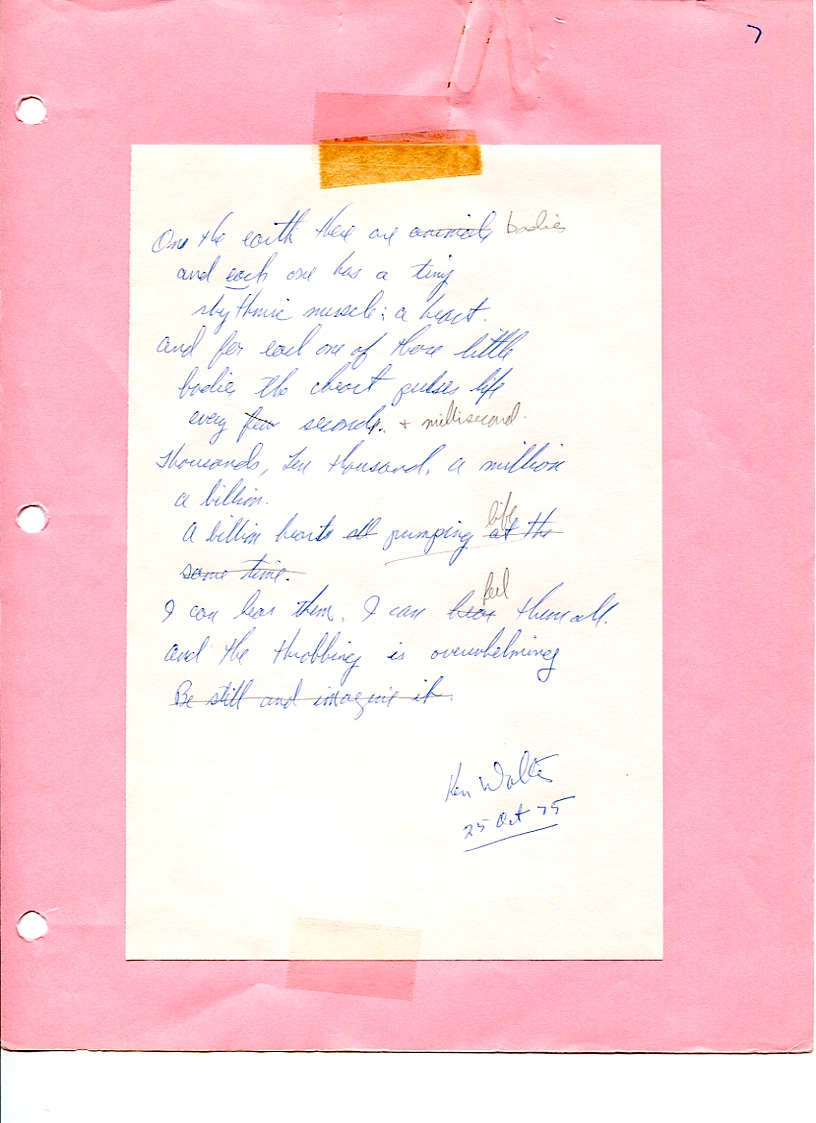 7
One the earth there are animals bodies
and each one has a tiny
rhythmic muscle: a heart.
and for each one of those little
bodies the heart pulses life
every few seconds. + millisecond.
Thousands, ten thousand, a million
a billion.
A billion hearts all pumping at the life
same time.
I can hear them, I can hear feel them all.
and the throbbing is overwhelming
Be still and imagine it.
Ken Walter
25 Oct 75